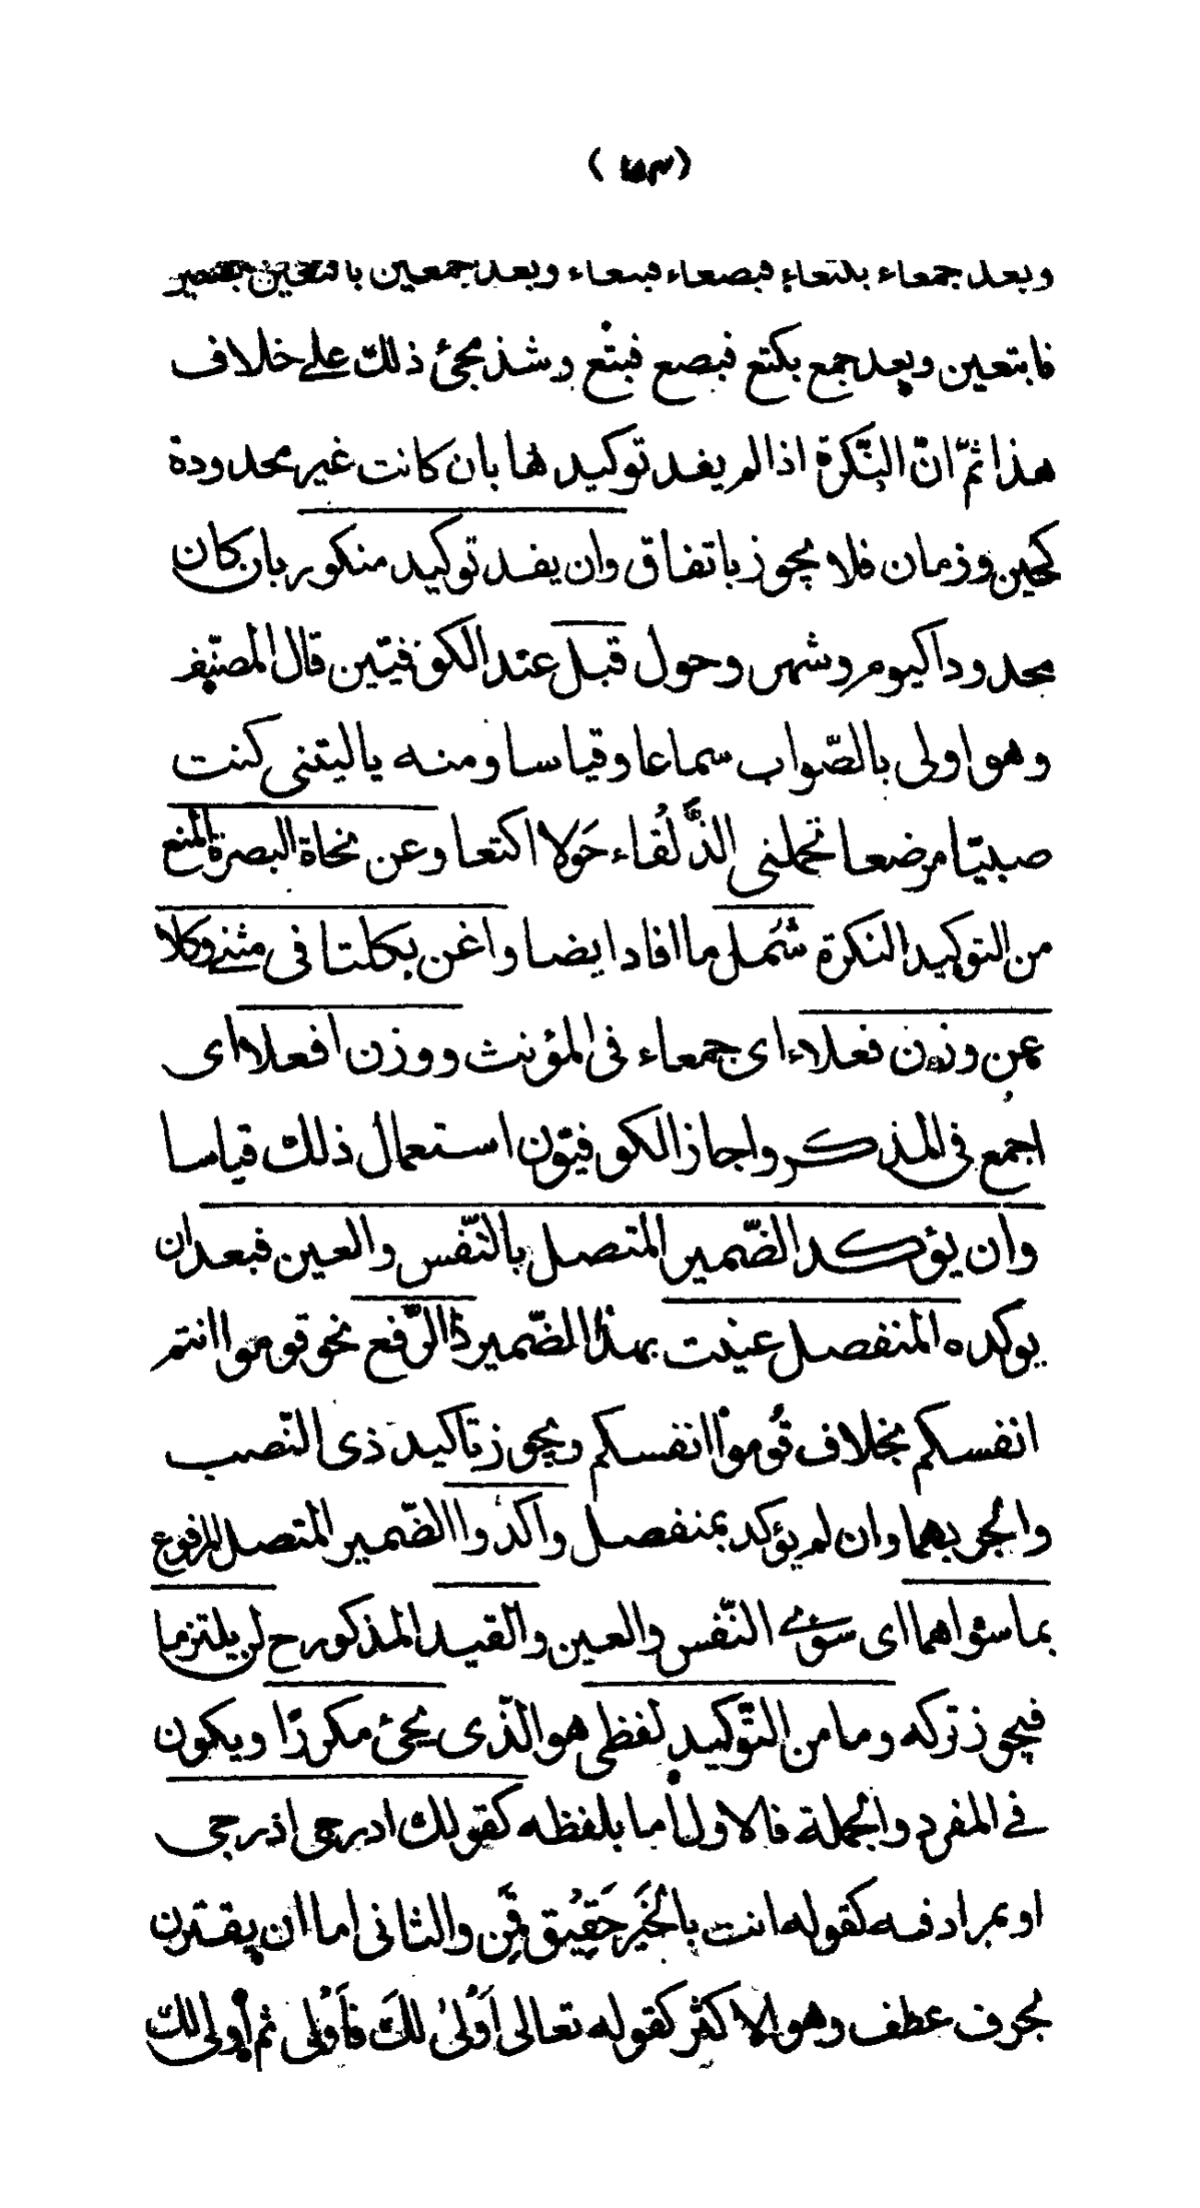 وبعد جمعاء بكتعاء فبصعاء فبتعاء وبعد جمعين باكتعين
فابتعين وبعد جمع بكتع فبصع فبتع وشذ مجئ ذلك على خلاف
هذا ثمّ انّ النّكرة اذا لم يفد توكيد لها بان كانت غير محدودة
كحين وزمان فلا يجوز باتفاق وان يفد توكيد منكور بان كان
محدودا كيوم وشهر وحول قبل عند الكوفيّين قال المصنّف
وهو اولى بالصّواب سماعا وقياسا ومنه ياليتنى كنت
صبيّا مرضعا تحملنى الذَّلْفاء حَولا اكتعا وعن نحاة البصرة المنع
من التوكيد النكرة شَمل ما افاد ايضا واغن بكلتا فى مثنى وكلا
عن وزن فعلاء اى جمعاء فى المؤنث ووزن افعلا اى
اجمع فى المذكر واجاز الكوفيّون استعمال ذلك قياسا
وان يؤكد الضّمير المتصل بالنّفس والعين فبعد ان
يوكده المنفصل عنيت بهذا الضّمير ذا الرّفع نحو قوموا انتم
انفسكم بخلاف قُوموا انفسكم ويجوز تاكيد ذى النّصب
والجر بهما وان لم يؤكد بمنفصل واكدوا الضّمير المتصل المرفوع
بما سواهما اى سوى النّفس والعين والقيد المذكور ح لن يلتزما
فيجوز تركه وما من التّوكيد لفظى هو الذّى يجئ مكررًا ويكون
فى المفرد والجملة فالاول أما بلفظه كقولك ادرجى ادرجى
او بمرادفه كقوله انت بالخَيرِ حَقِيْق قَمِن والثانى اما ان يقترن
بحرف عطف وهو الاكثر كقوله تعالى اَوْلىٰ لكَ فأَوْلى ثم أولى لك